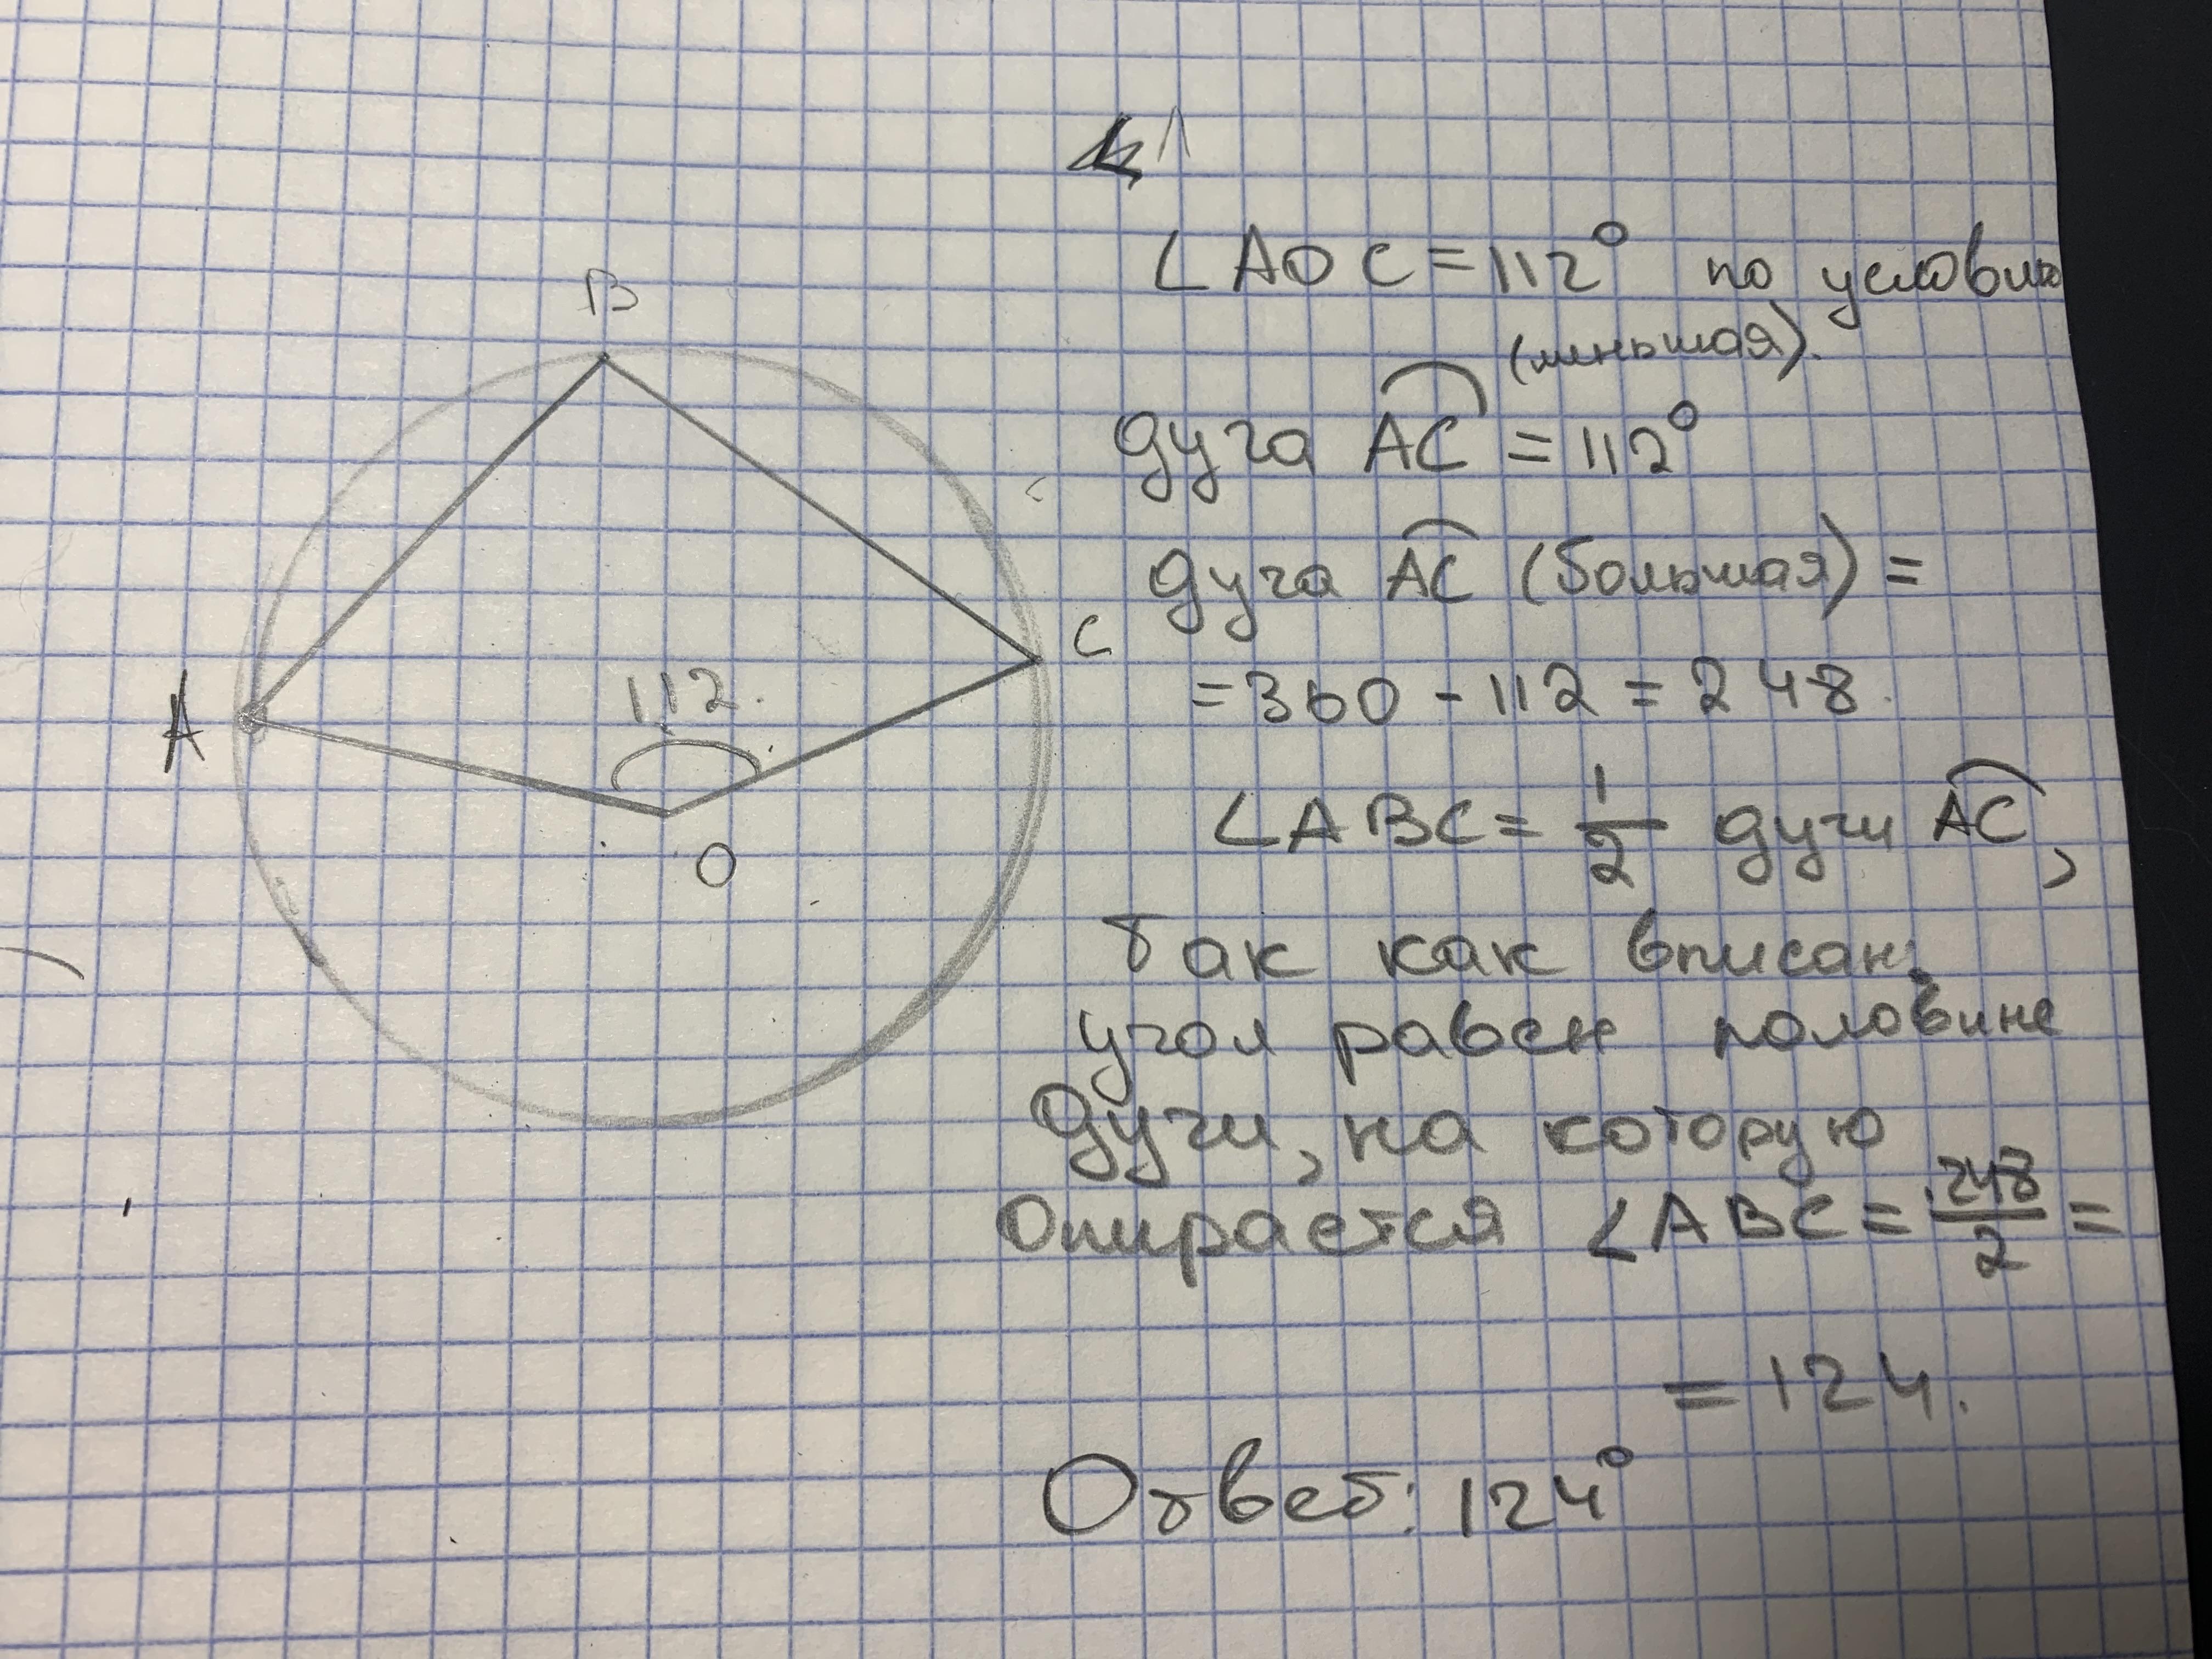 1
∠AOC = 112° по условию
(меньшая).
дуга AC = 112°
дуга AC (большая) =
= 360 - 112 = 248.
∠ABC = 1/2 дуги AC,
так как вписан.
угол равен половине
дуги, на которую
опирается ∠ABC = 248/2 =
= 124.
Ответ: 124°
B
C
A
112.
O